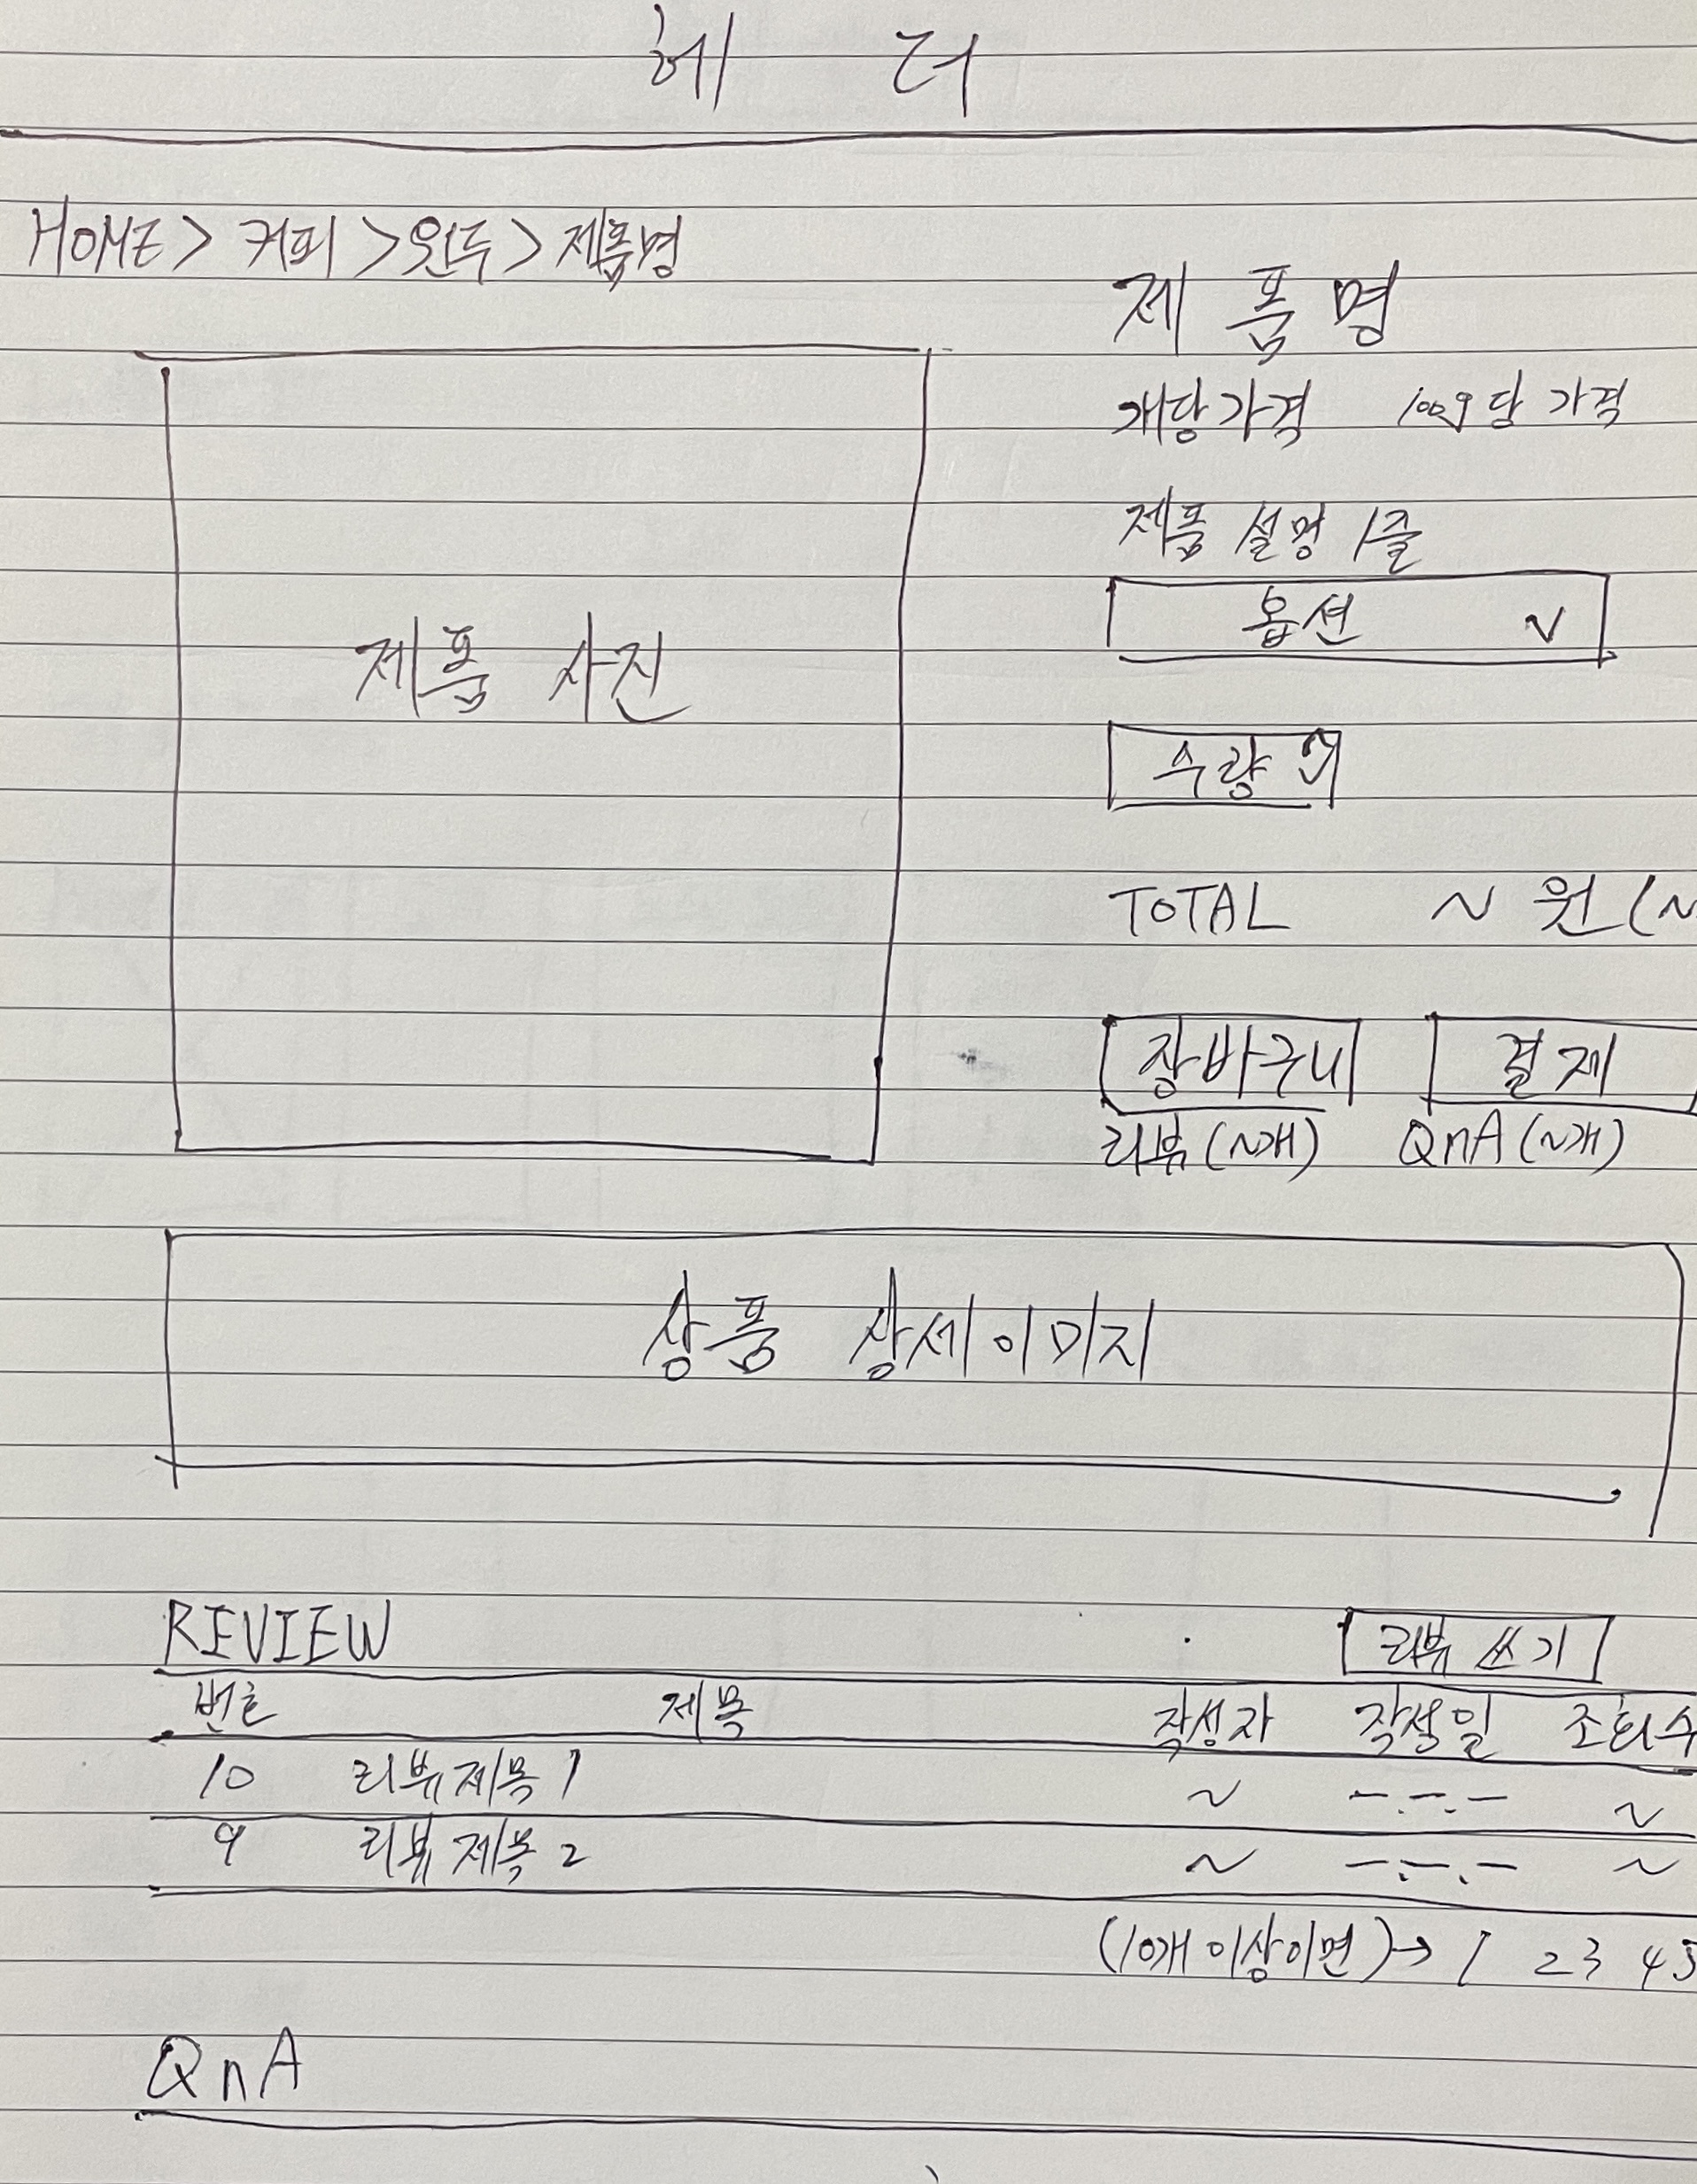 헤 더
HOME > 커피 > 원두 > 제품명
제 품 명
개당가격 100g당 가격
제품 설명 1줄
옵션 ∨
제품 사진
수량
TOTAL ~ 원 (~
장바구니 결제
리뷰 (~개) QnA (~개)
상품 상세이미지
REVIEW 리뷰 쓰기
번호 제목 작성자 작성일 조회수
10 리뷰제목 1 ~ -.-.- ~
9 리뷰 제목 2 ~ -.-.- ~
(10개 이상이면) → 1 2 3 4 5
QnA